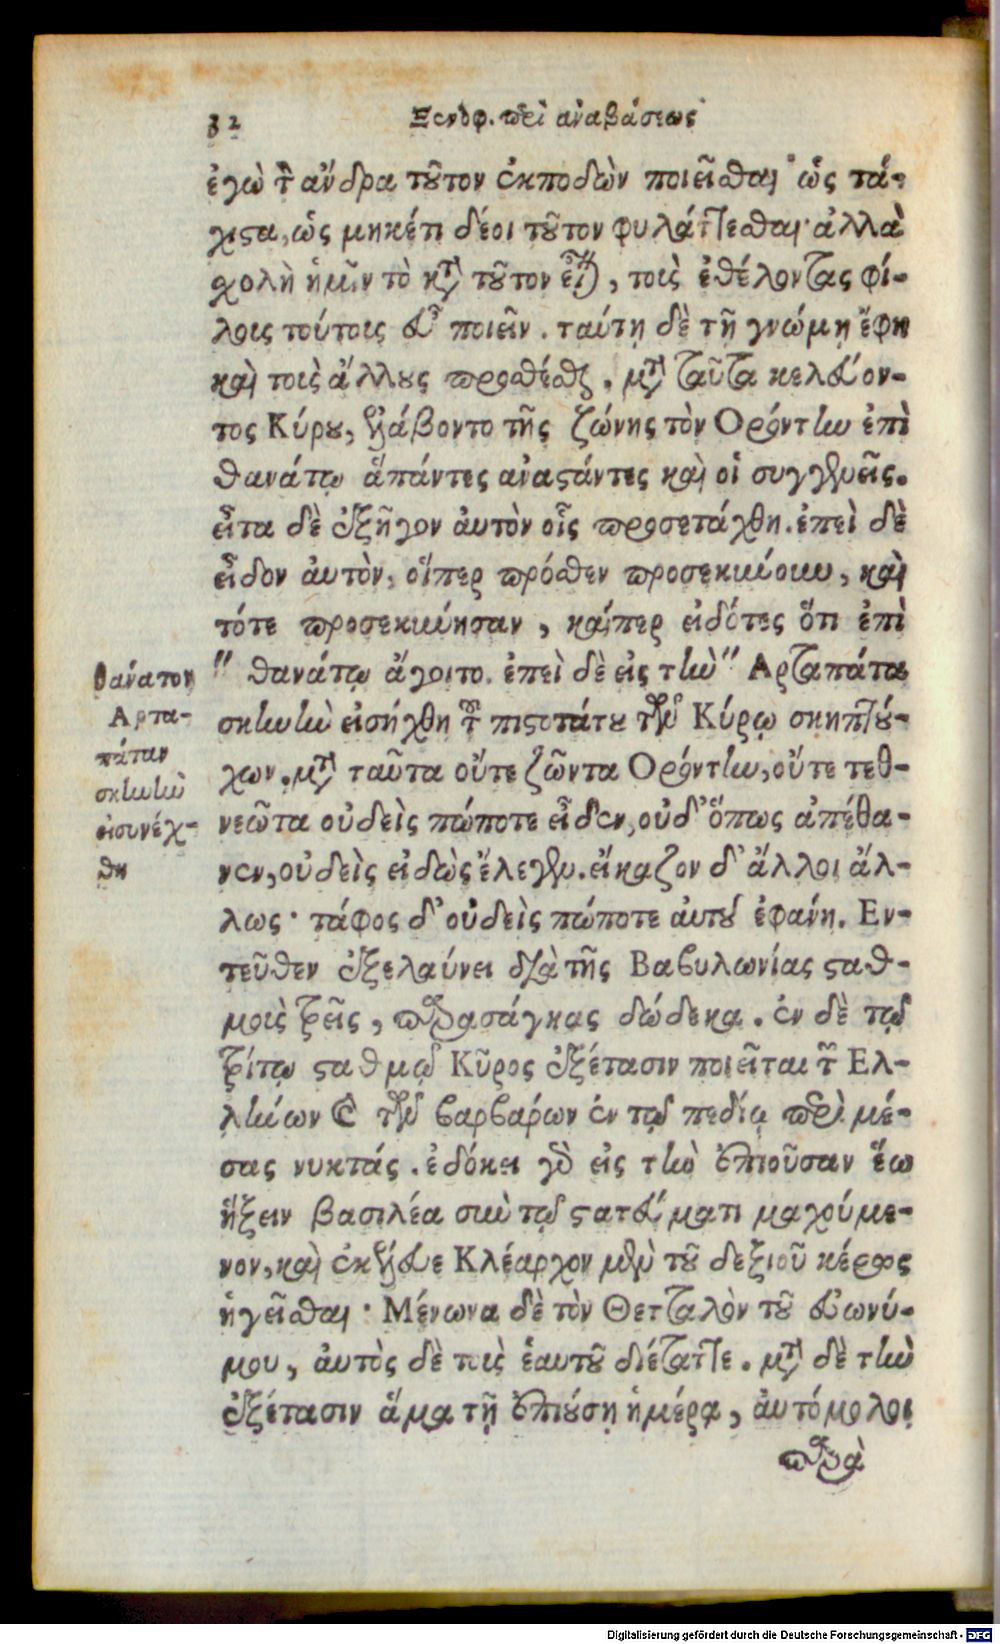 32 Ξενοφ. περὶ ἀναβάσεως
ἐγὼ τὸν ἄνδρα τοῦτον ἐκποδὼν ποιεῖσθαι ὡς τά-
χιστα, ὡς μηκέτι δέοι τοῦτον φυλάττεσθαι· ἀλλὰ
σχολὴ ἡμῖν τὸ κατὰ τοῦτον εἶναι, τοὺς ἐθέλοντας φί-
λους τούτους εὖ ποιεῖν. ταύτῃ δὲ τῇ γνώμῃ ἔφη
καὶ τοὺς ἄλλους προσθέσθαι. μετὰ ταῦτα κελεύον-
τος Κύρου, ἐλάβοντο τῆς ζώνης τὸν Ορόντην ἐπὶ
θανάτῳ ἁπάντες ἀναστάντες καὶ οἱ συγγενεῖς.
εἶτα δὲ ἐξῆγον ἀυτὸν οἷς προσετάχθη. ἐπεὶ δὲ
εἶδον ἀυτὸν, οἵπερ πρόσθεν προσεκύνουν, καὶ
τότε προσεκύνησαν, καίπερ εἰδότες ὅτι ἐπὶ
" θανάτῳ ἄγοιτο. ἐπεὶ δὲ εἰς τὴν " Αρταπάτα
σκηνὴν εἰσήχθη τοῦ πιστοτάτου τῶν Κύρῳ σκηπτού-
χων. μετὰ ταῦτα οὔτε ζῶντα Ορόντην, οὔτε τεθ-
νεῶτα οὐδεὶς πώποτε εἶδεν, οὐδ' ὅπως ἀπέθα-
νεν, οὐδεὶς εἰδὼς ἔλεγεν. εἴκαζον δ' ἄλλοι ἄλ-
λως· τάφος δ' οὐδεὶς πώποτε ἀυτοῦ ἐφάνη. Εν-
τεῦθεν ἐξελαύνει διὰ τῆς Βαβυλωνίας σταθ-
μοὺς τρεῖς, παρασάγκας δώδεκα. ἐν δὲ τῷ
τρίτῳ σταθμῷ Κῦρος ἐξέτασιν ποιεῖται τῶν Ελ-
λήνων καὶ τῶν βαρβάρων ἐν τῷ πεδίῳ περὶ μέ-
σας νυκτάς. ἐδόκει γὰρ εἰς τὴν ἐπιοῦσαν ἕω
ἥξειν βασιλέα σὺν τῷ στατεύματι μαχούμε-
νον, καὶ ἐκέλευε Κλέαρχον μὲν τοῦ δεξιοῦ κέρως
ἡγεῖσθαι· Μένωνα δὲ τὸν Θετταλὸν τοῦ εὐωνύ-
μου, ἀυτὸς δὲ τοὺς ἑαυτοῦ διέταττε. μετὰ δὲ τὴν
ἐξέτασιν ἅμα τῇ ἐπιούσῃ ἡμέρᾳ, ἀυτόμολοι
παρὰ
θάνατον
Αρτα-
πάταν
σκηνὴν
εἰσυνέχ-
θη
Digitalisierung gefördert durch die Deutsche Forschungsgemeinschaft - DFG